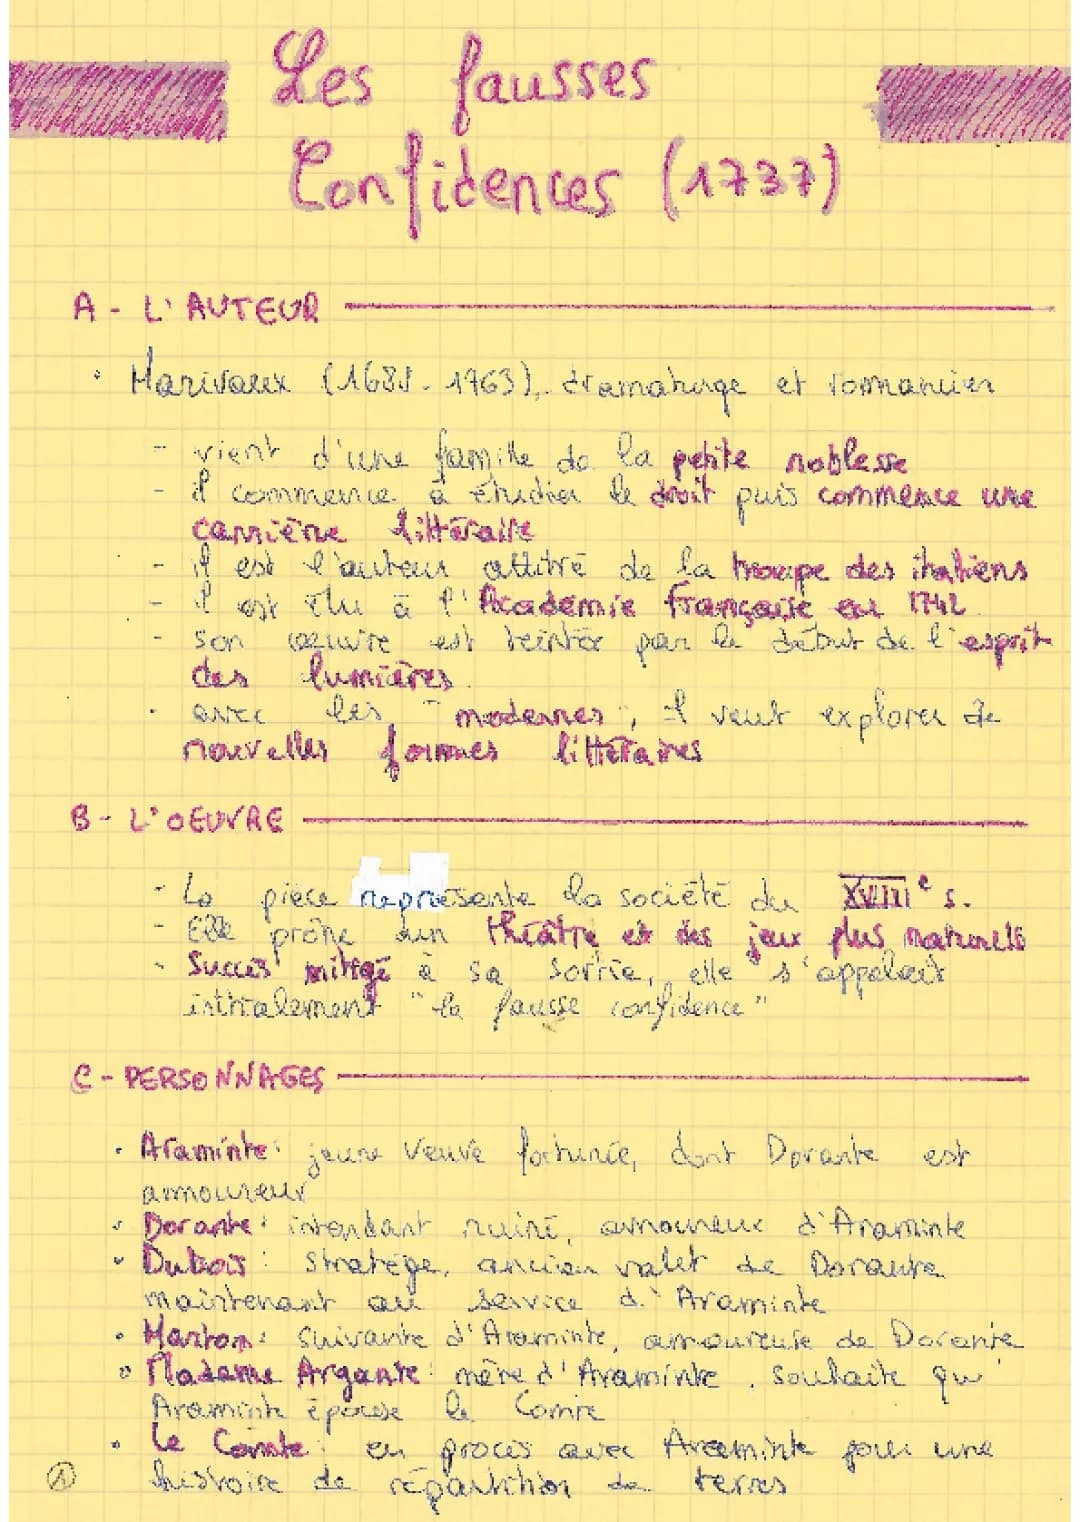 Les fausses
Confidences (1737)
A - L'AUTEUR
• Marivaux (1688 - 1763), dramaturge et romancier
- vient d'une famille de la petite noblesse
- il commence à étudier le droit puis commence une
carrière littéraire
- il est l'auteur attitré de la troupe des italiens
- il est élu à l'Académie française en 1742.
- son oeuvre est teintée par le début de l'esprit
des lumières.
- avec les "modernes", il veut explorer de
nouvelles formes littéraires
B - L'OEUVRE
- La pièce représente la société du XVIIIe s.
- Elle prône un théâtre et des jeux plus naturels
- Succès mitigé à sa sortie, elle s'appelait
initialement "la fausse confidence"
C - PERSONNAGES
• Araminte: jeune veuve fortunée, dont Dorante est
amoureux
• Dorante: intendant ruiné, amoureux d'Araminte
• Dubois: stratège, ancien valet de Dorante
maintenant au service d'Araminte
• Marton: suivante d'Araminte, amoureuse de Dorante
• Madame Argante: mère d'Araminte, souhaite qu'
Araminte épouse le Comte
• Le Comte: en procès avec Araminte pour une
histoire de répartition de terres
1